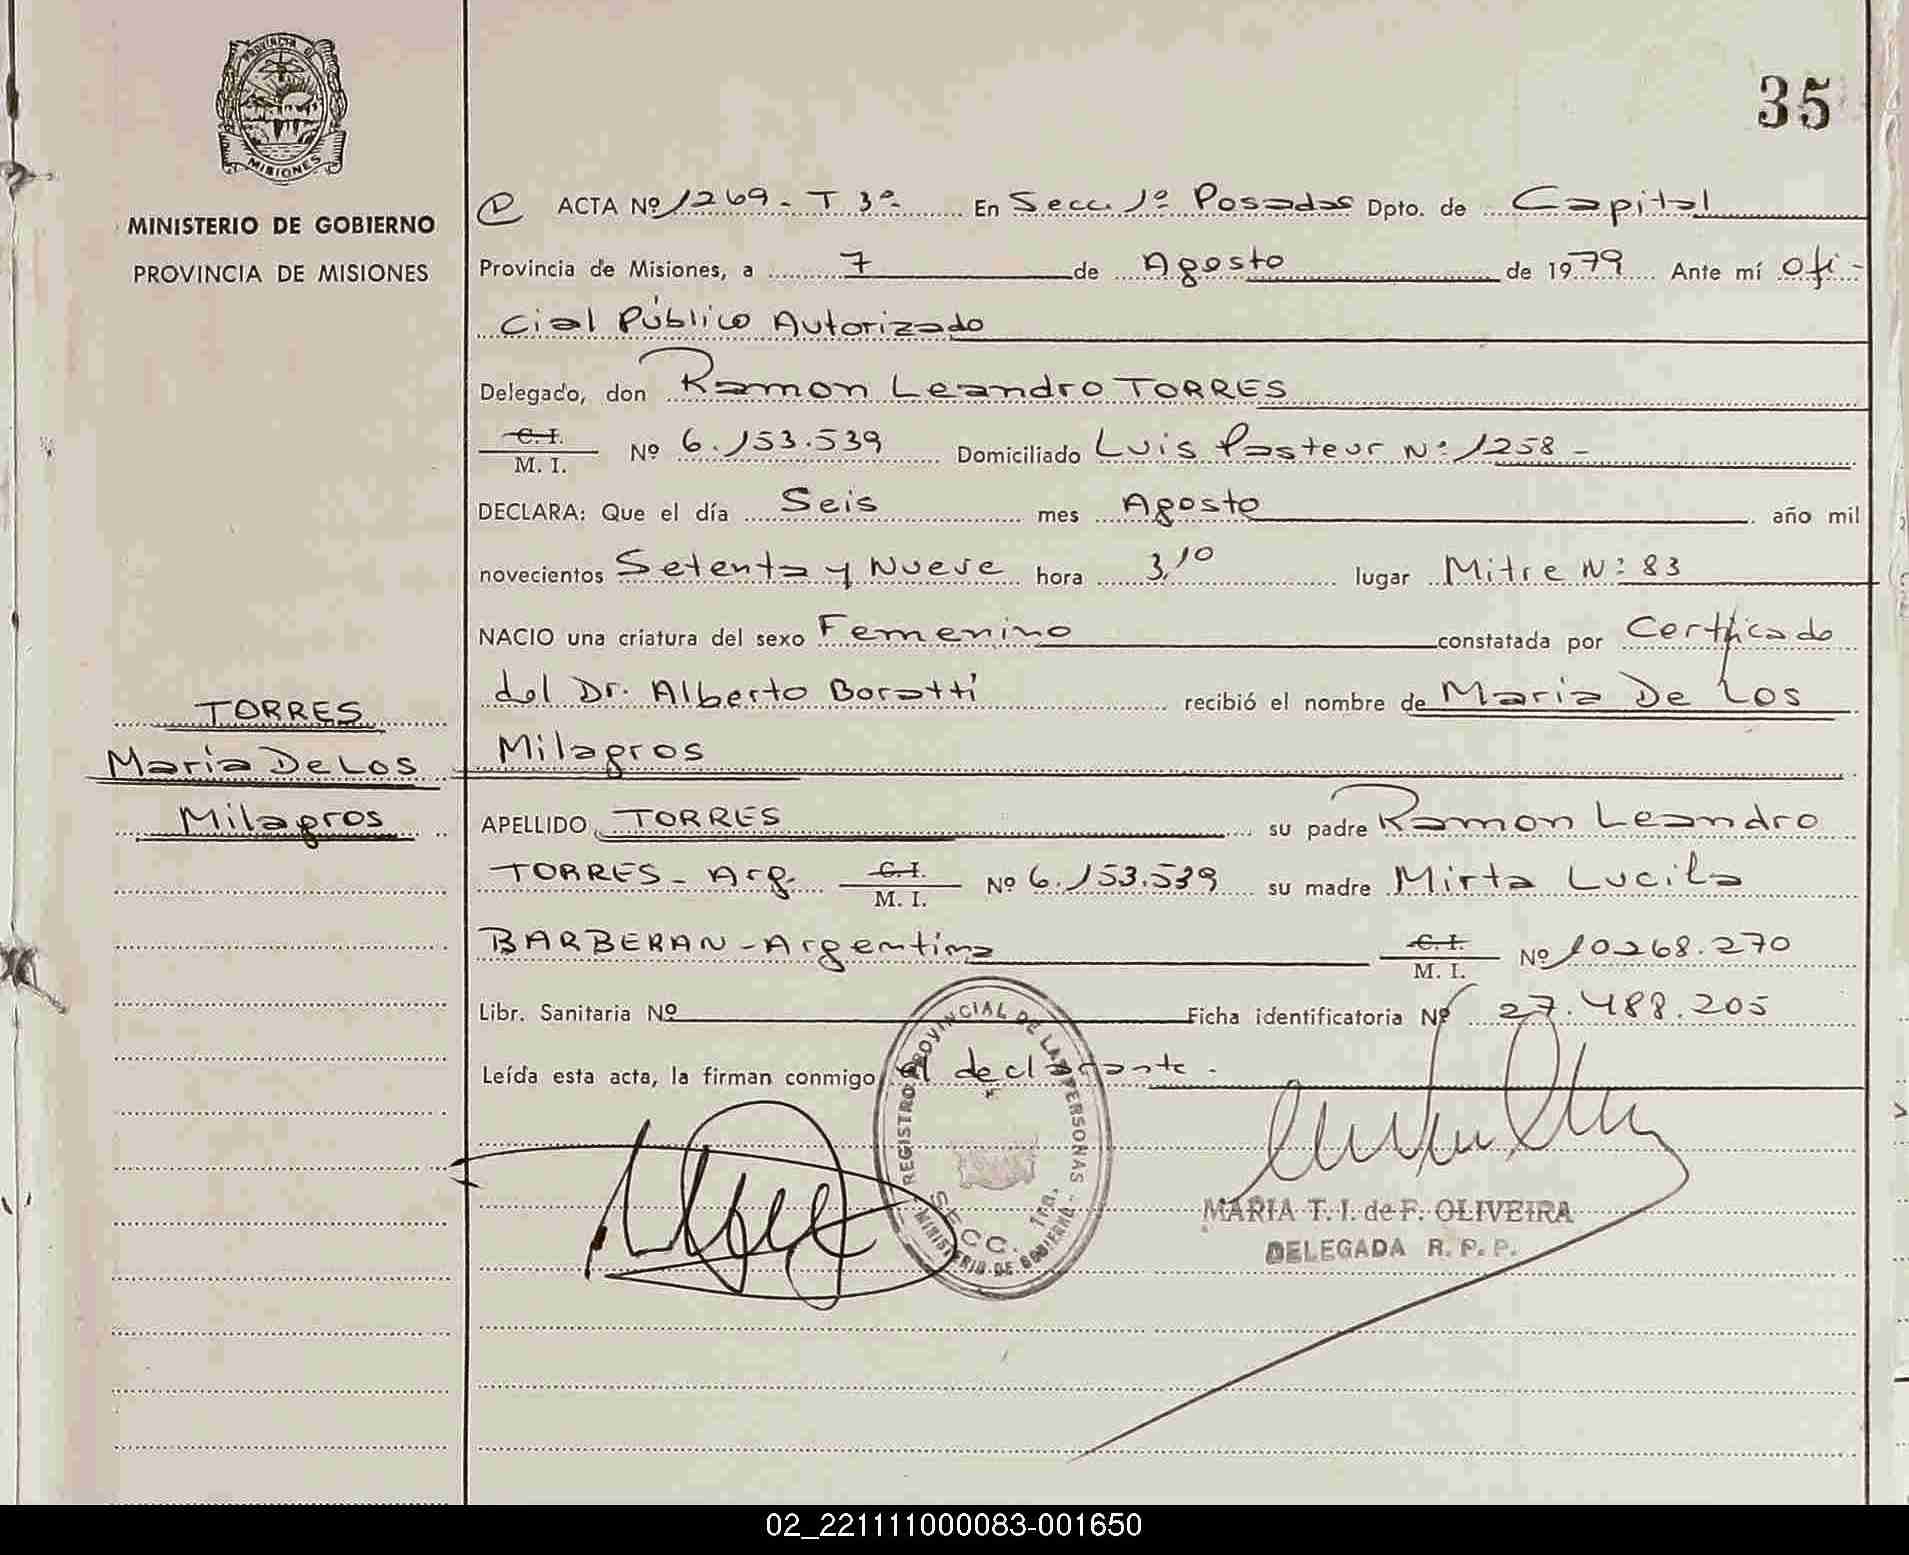 PROVINCIA DE
MISIONES
MINISTERIO DE GOBIERNO
PROVINCIA DE MISIONES
TORRES
Maria De Los
Milagros
35
ACTA Nº 1269 - T 3º - En Secc. 1º Posadas Dpto. de Capital
Provincia de Misiones, a 7 de Agosto de 1979 Ante mí Ofi-
cial Público Autorizado
Delegado, don Ramon Leandro TORRES
C. I.
M. I. Nº 6.153.539 Domiciliado Luis Pasteur Nº 1258 -
DECLARA: Que el día Seis mes Agosto año mil
novecientos Setenta y Nueve hora 3,10 lugar Mitre Nº 83
NACIO una criatura del sexo Femenino constatada por Certificado
del Dr. Alberto Boratti recibió el nombre de Maria De Los
Milagros
APELLIDO TORRES su padre Ramon Leandro
TORRES - Arg. C. I.
M. I. Nº 6.153.539 su madre Mirta Lucila
BARBERAN - Argentina C. I.
M. I. Nº 10268.270
Libr. Sanitaria Nº Ficha identificatoria Nº 27.488.205
Leída esta acta, la firman conmigo el declarante -
REGISTRO PROVINCIAL DE LAS PERSONAS -
SECC. 1ra.
MINISTERIO DE GOBIERNO
MARIA T. I. de F. OLIVEIRA
DELEGADA R. P. P.
02_221111000083-001650